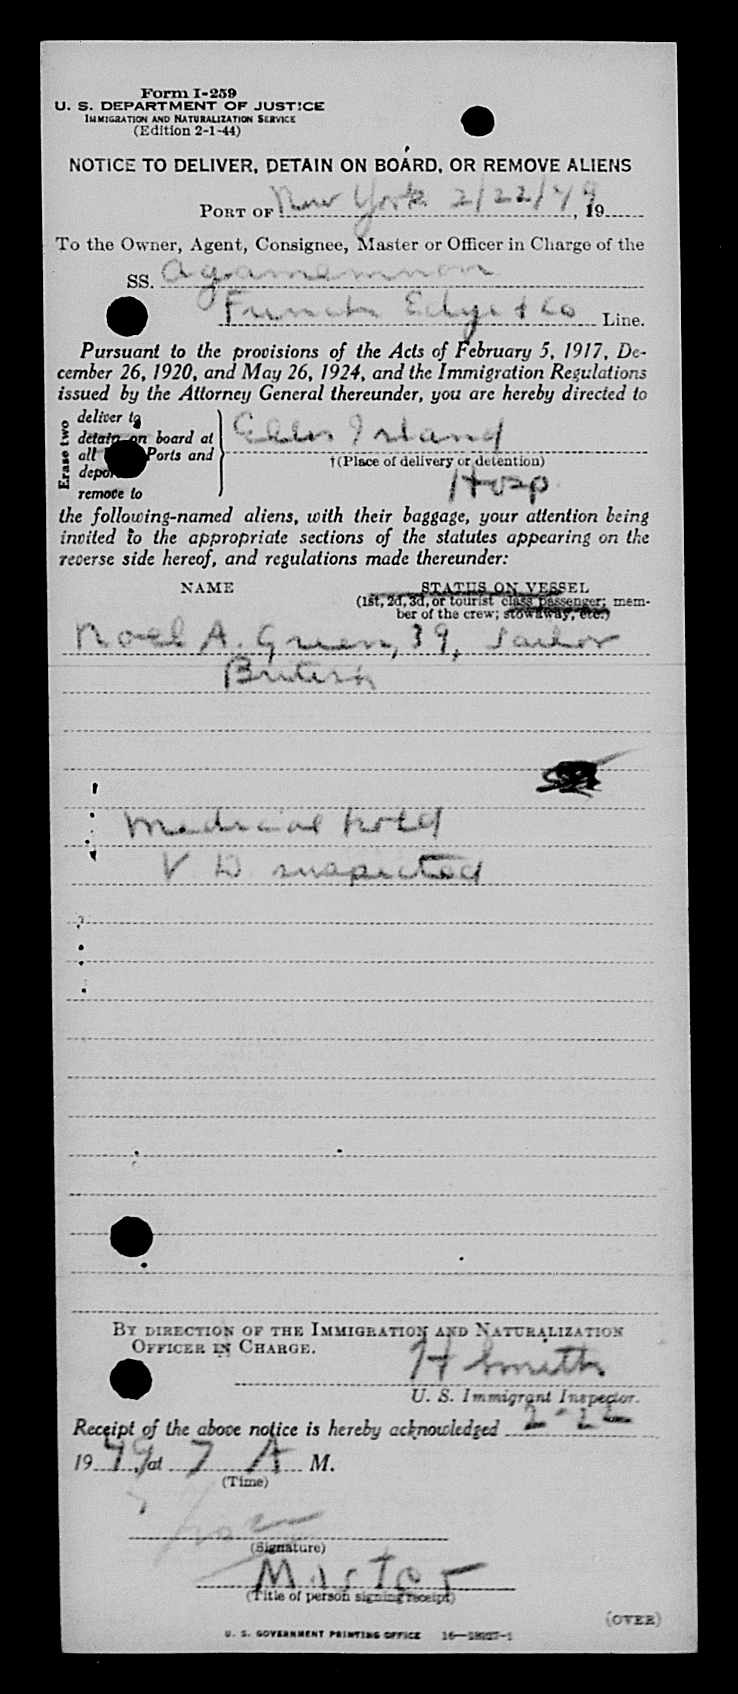 Form I-259
U. S. DEPARTMENT OF JUSTICE
IMMIGRATION AND NATURALIZATION SERVICE
(Edition 2-1-44)
NOTICE TO DELIVER, DETAIN ON BOARD, OR REMOVE ALIENS
PORT OF New York 2/22/49, 19
To the Owner, Agent, Consignee, Master or Officer in Charge of the
SS. Agamemnon
Funch Edye & Co Line.
Pursuant to the provisions of the Acts of February 5, 1917, De-
cember 26, 1920, and May 26, 1924, and the Immigration Regulations
issued by the Attorney General thereunder, you are hereby directed to
Erase two
deliver to
detain on board at
all Ports and
remove to
Ellis Island
†(Place of delivery or detention)
Hosp
the following-named aliens, with their baggage, your attention being
invited to the appropriate sections of the statutes appearing on the
reverse side hereof, and regulations made thereunder:
NAME
STATUS ON VESSEL
(1st, 2d, 3d, or tourist class passenger; mem-
ber of the crew; stowaway, etc.)
Noel A. Green, 39, Sailor
British
Medical hold
V D suspected
BY DIRECTION OF THE IMMIGRATION AND NATURALIZATION
OFFICER IN CHARGE.
H Smith
U. S. Immigrant Inspector.
Receipt of the above notice is hereby acknowledged 2-22
1949, at 7 A M.
(Time)
(Signature)
Master
(Title of person signing receipt)
(OVER)
U. S. GOVERNMENT PRINTING OFFICE 16—18027-1